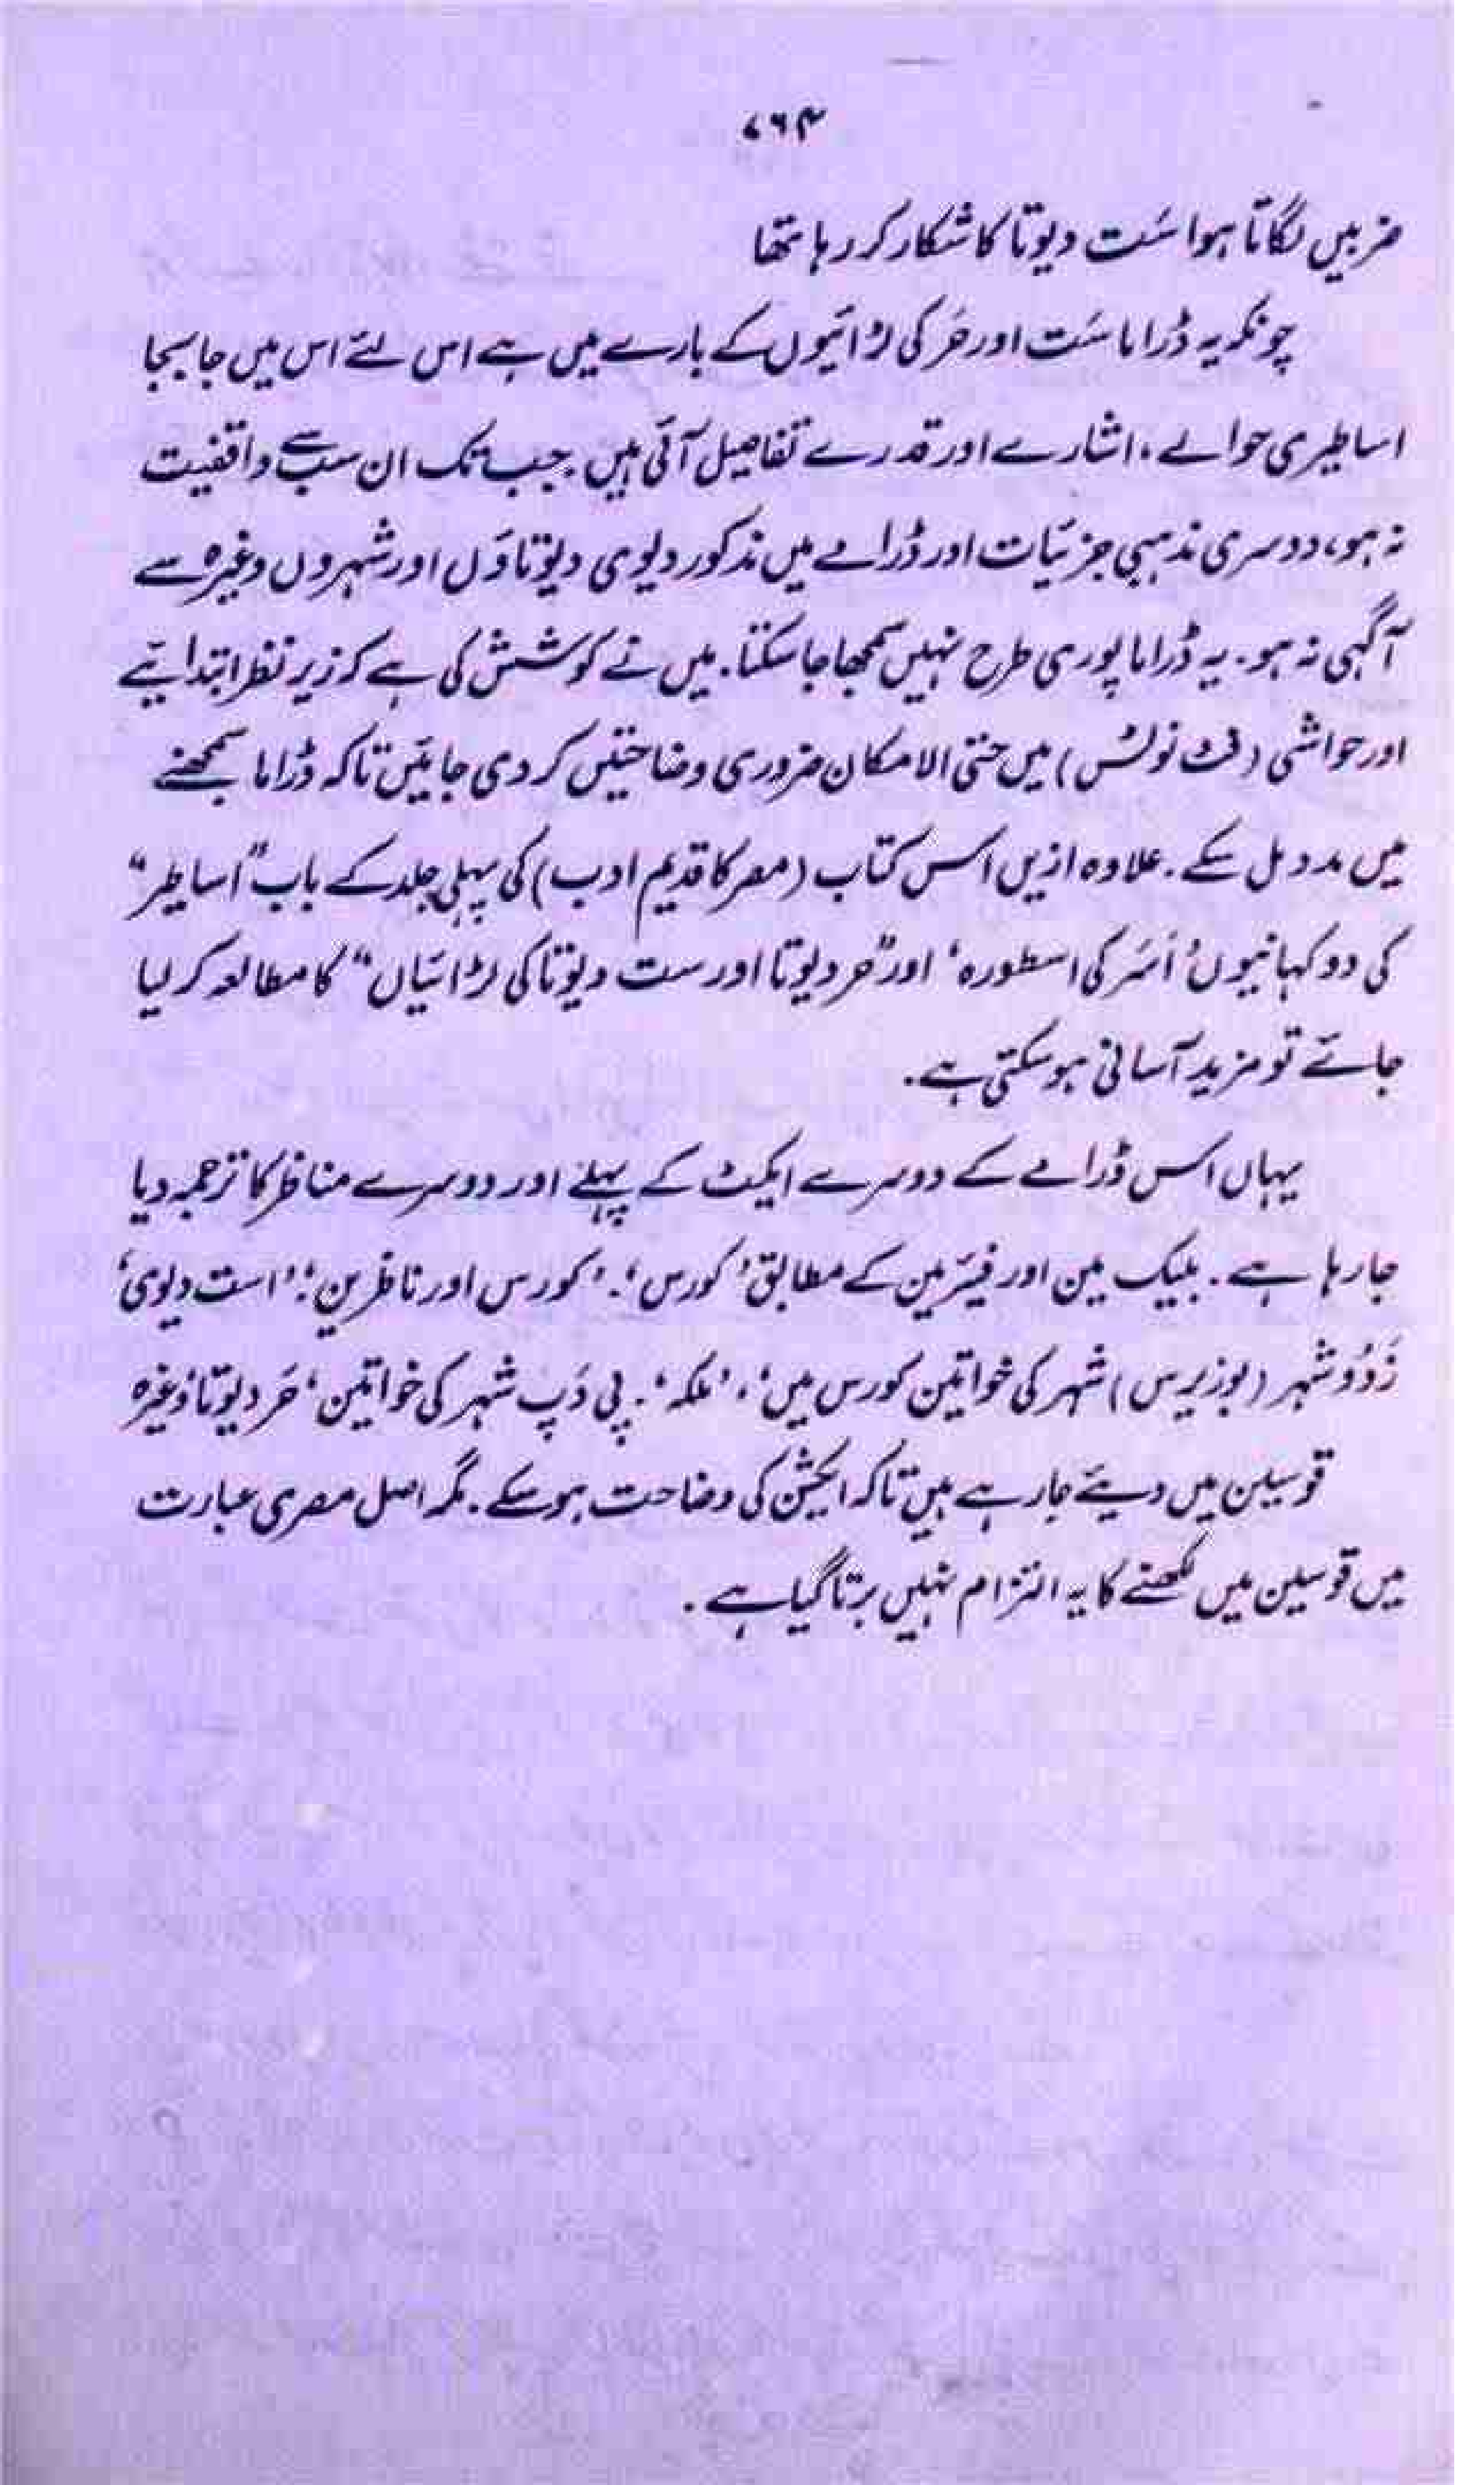 ۷۶۴
ضربیں لگاتا ہوا سَت دیوتا کا شکار کر رہا تھا
چونکہ یہ ڈراما سَت اور حَر کی لڑائیوں کے بارے میں ہے اس لئے اس میں جابجا
اساطیری حوالے، اشارے اور قدرے تفاصیل آئی ہیں۔ جب تک ان سب سے واقفیت
نہ ہو، دوسری مذہبی جزئیات اور ڈرامے میں مذکور دیوی دیوتاؤں اور شہروں وغیرہ سے
آگہی نہ ہو۔ یہ ڈراما پوری طرح نہیں سمجھا جا سکتا۔ میں نے کوشش کی ہے کہ زیر نظر ابتدائیے
اور حواشی (فٹ نوٹس) میں حتی الامکان ضروری وضاحتیں کر دی جائیں تاکہ ڈراما سمجھنے
میں مدد مل سکے۔ علاوہ ازیں اس کتاب (مصر کا قدیم ادب) کی پہلی جلد کے باب ”اساطیر“
کی دو کہانیوں ’اُسَر کی اسطورہ‘ اور ”حر دیوتا اور ست دیوتا کی لڑائیاں“ کا مطالعہ کر لیا
جائے تو مزید آسانی ہو سکتی ہے۔
یہاں اس ڈرامے کے دوسرے ایکٹ کے پہلے اور دوسرے مناظر کا ترجمہ دیا
جا رہا ہے۔ بلیک مین اور فیئرمین کے مطابق ’کورس‘۔ ’کورس اور ناظرین‘؛ ’است دیوی‘
زَدُو شہر (بوزیرس) شہر کی خواتین کورس میں‘، ’ملکہ‘۔ پی دَپ شہر کی خواتین‘ حَر دیوتا‘ وغیرہ
قوسین میں دیئے جا رہے ہیں تاکہ ایکشن کی وضاحت ہو سکے۔ مگر اصل مصری عبارت
میں قوسین میں لکھنے کا یہ التزام نہیں برتا گیا ہے۔